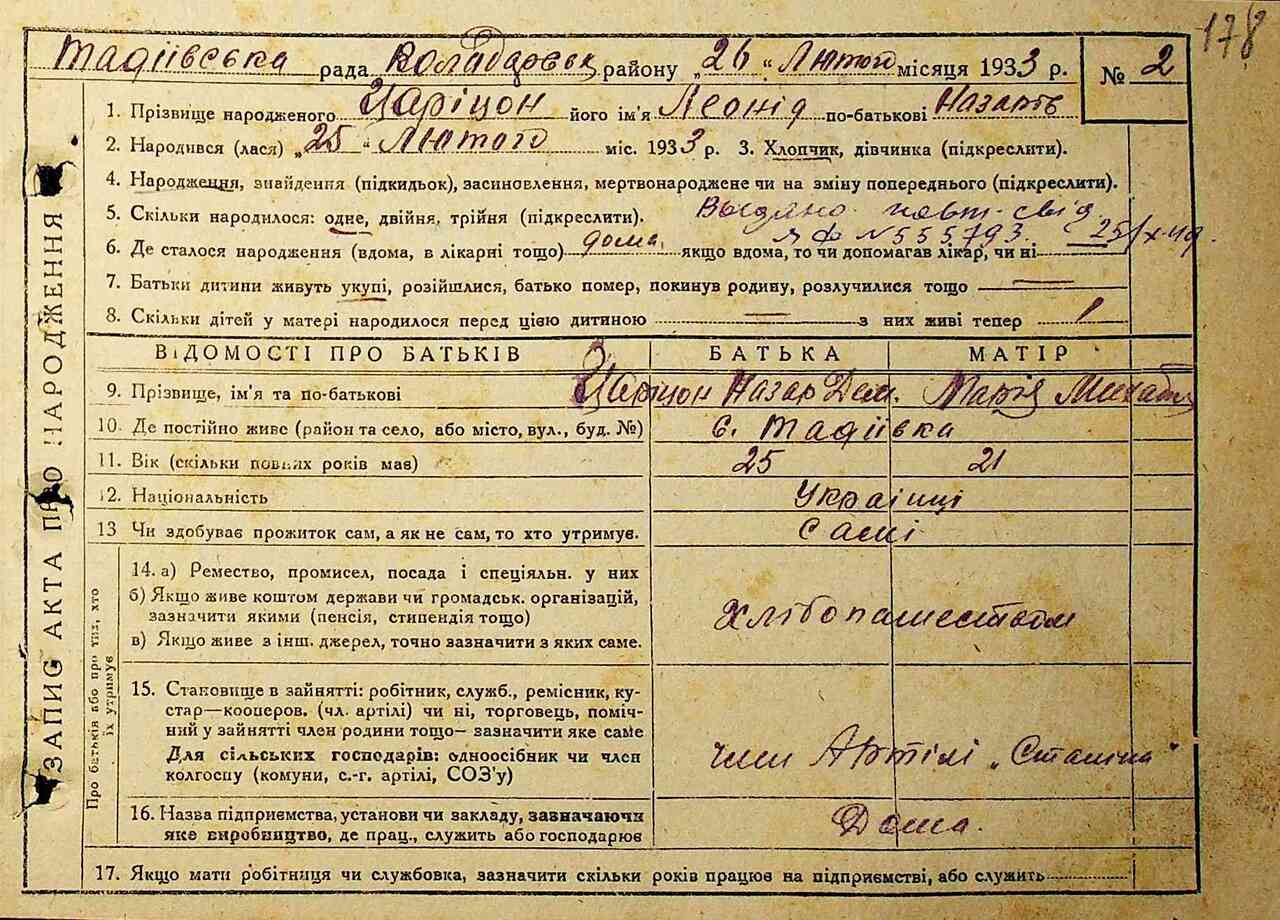 178
Тадіївська рада Володарськ району „26" Лютого місяця 1933 р. № 2
1. Прізвище народженого Царіцон його ім'я Леонід по-батькові Назарів
2. Народився (лася) „25" Лютого міс. 1933 р. 3. Хлопчик, дівчинка (підкреслити).
4. Народження, знайдення (підкидьок), засиновлення, мертвонароджене чи на зміну попереднього (підкреслити).
5. Скільки народилося: одне, двійня, трійня (підкреслити). Выдано повт. свід.
ЯФ № 555793. 25/X-49.
6. Де сталося народження (вдома, в лікарні тощо) дома, якщо вдома, то чи допомагав лікар, чи ні —
7. Батьки дитини живуть укупі, розійшлися, батько помер, покинув родину, розлучилися тощо —
8. Скільки дітей у матері народилося перед цією дитиною — з них живі тепер 1
ЗАПИС АКТА ПРО НАРОДЖЕННЯ
ВІДОМОСТІ ПРО БАТЬКІВ БАТЬКА МАТІР
9. Прізвище, ім'я та по-батькові Царіцон Назар Дем. Марія
10. Де постійно живе (район та село, або місто, вул., буд. №) с. Тадіївка
11. Вік (скільки повних років має) 25 21
12. Національність Українці
13 Чи здобуває прожиток сам, а як не сам, то хто утримує. Самі
Про батьків або про тих, хто
їх утримує
14. а) Ремество, промисел, посада і спеціяльн. у них
б) Якщо живе коштом держави чи громадськ. організацій,
зазначити якими (пенсія, стипендія тощо) Хлібопашеством
в) Якщо живе з інш. джерел, точно зазначити з яких саме.
15. Становище в зайнятті: робітник, служб., ремісник, ку-
стар—кооперов. (чл. артілі) чи ні, торговець, поміч-
ний у зайнятті член родини тощо— зазначити яке саме
Для сільських господарів: одноосібник чи член
колгоспу (комуни, с.-г. артілі, СОЗ'у) член Артілі „Сталіна"
16. Назва підприємства, установи чи закладу, зазначаючи
яке виробництво, де прац., служить або господарює Дома.
17. Якщо мати робітниця чи службовка, зазначити скільки років працює на підприємстві, або служить